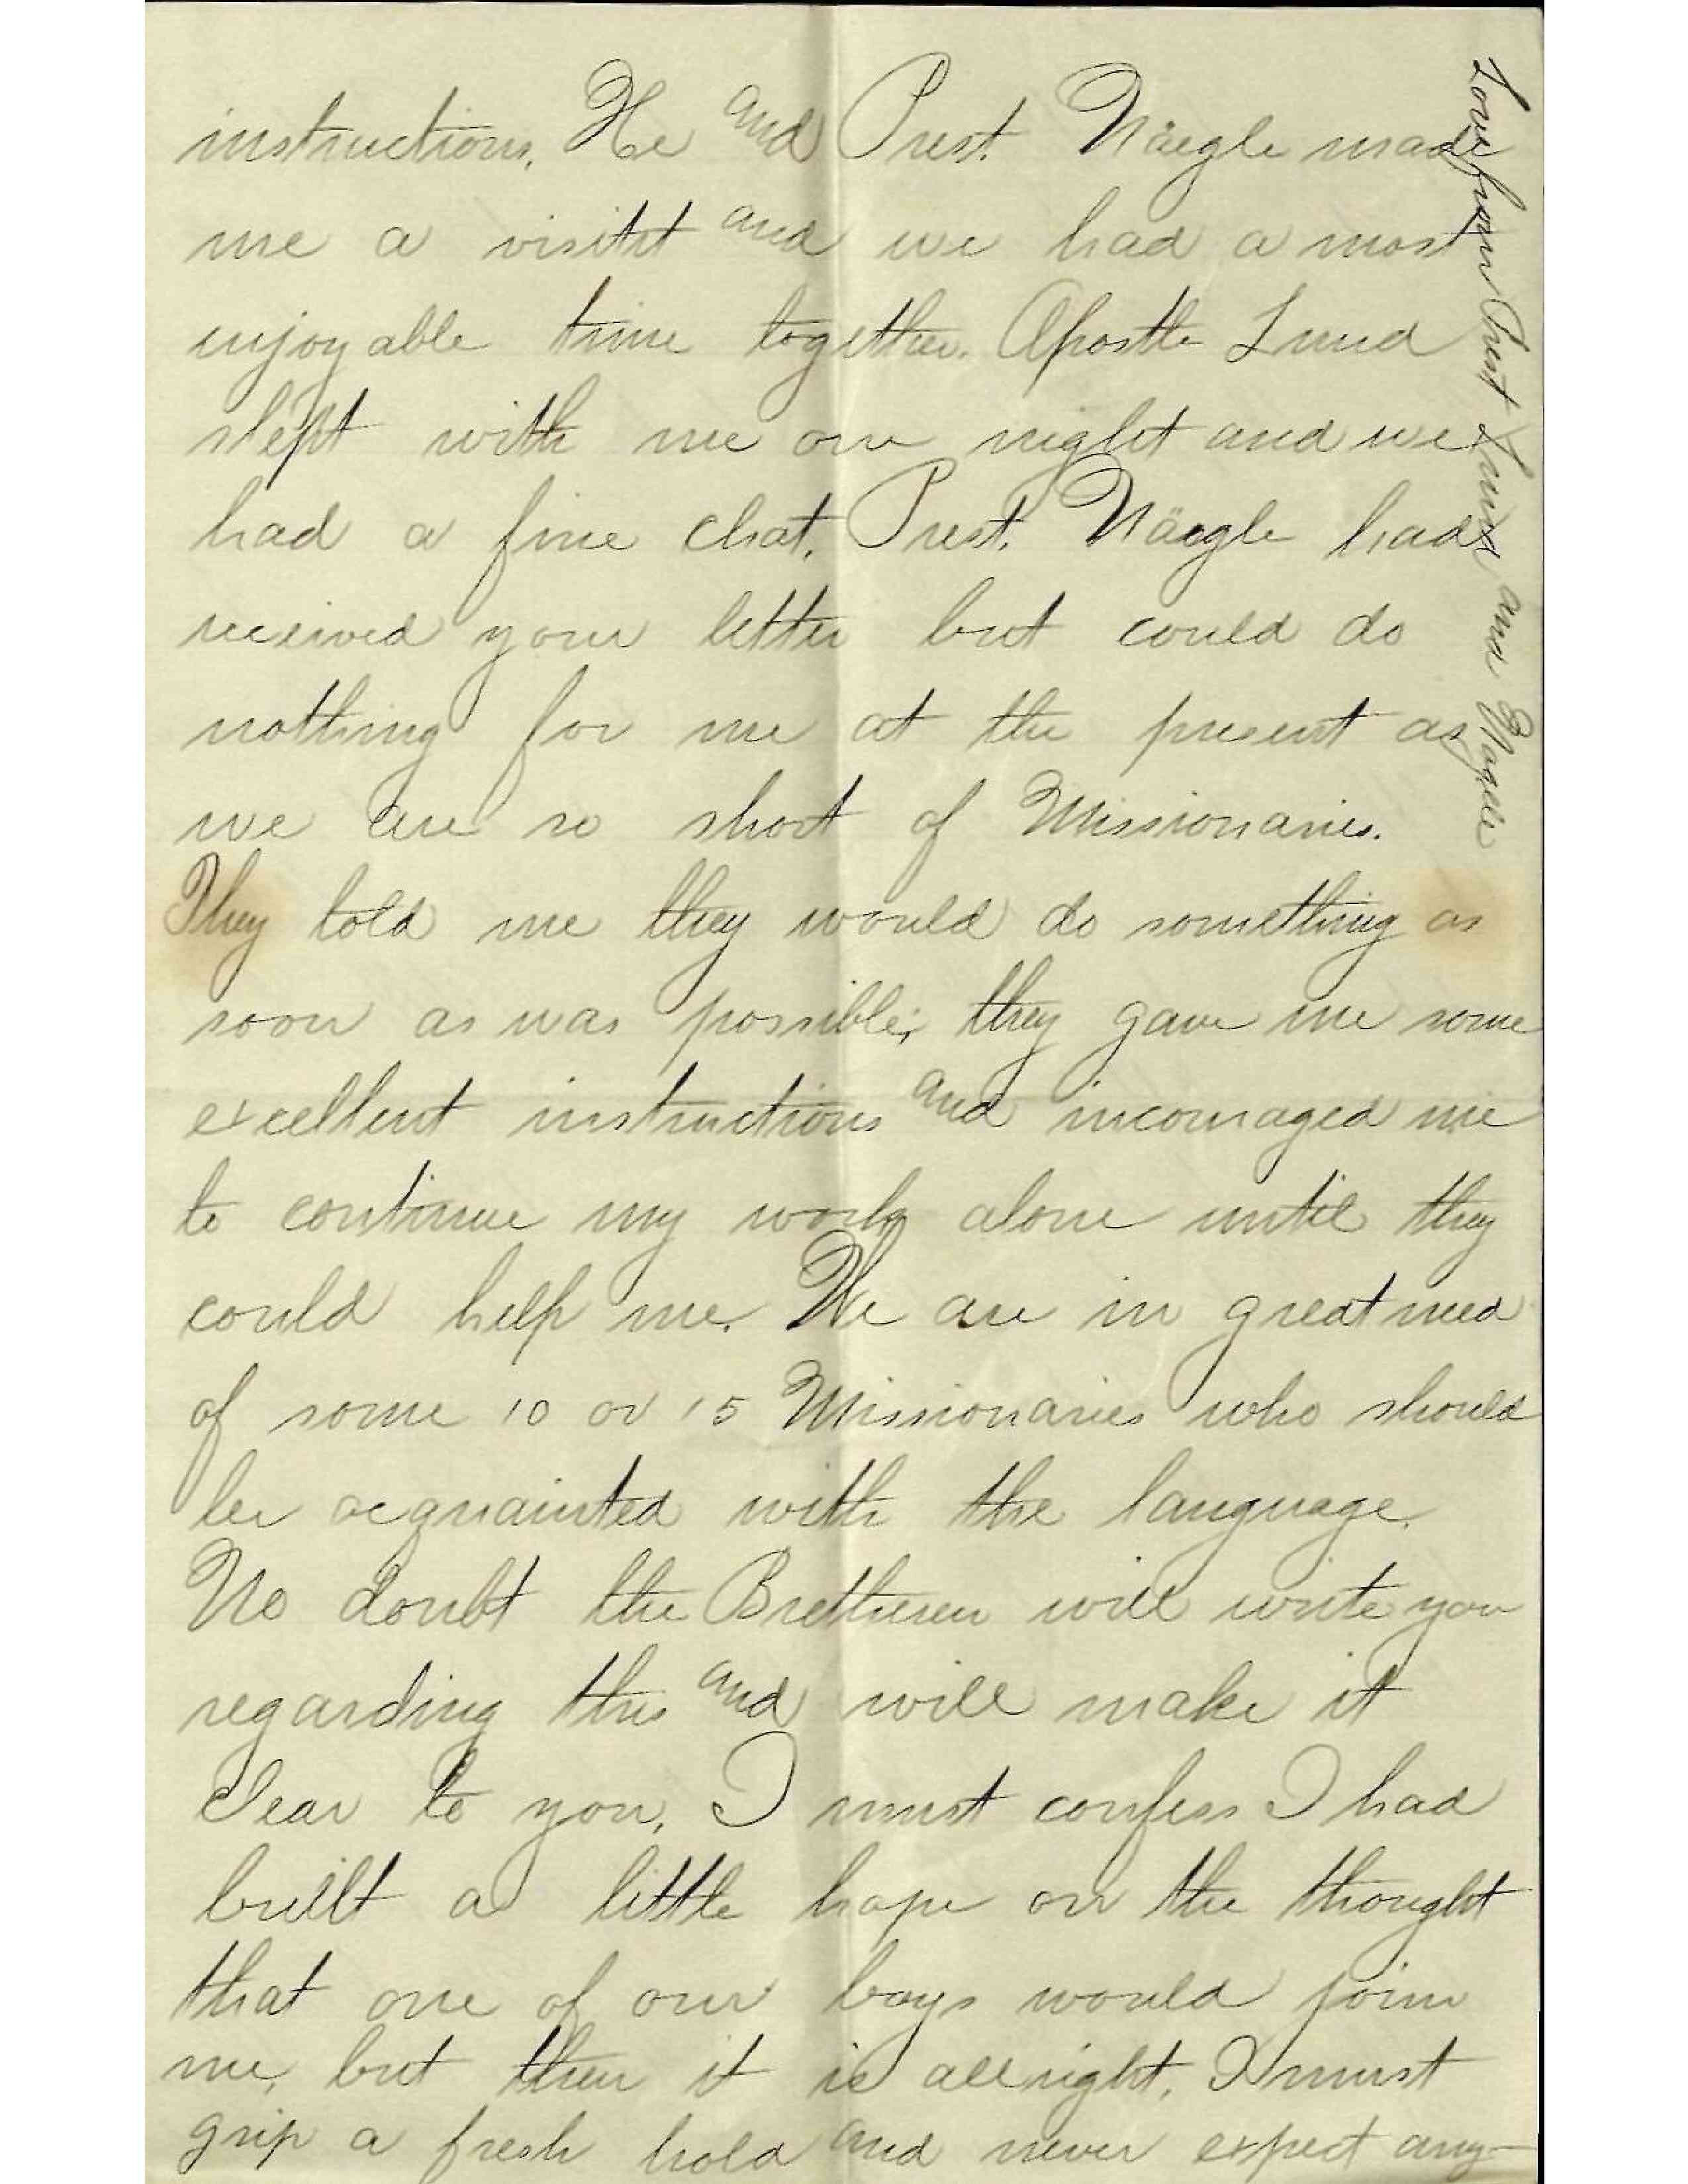 instructions. He and Prest. Näegle made
me a visitit and we had a most
enjoyable time together. Apostle Lund
slept with me one night and we
had a fine chat. Prest. Näegle had
received your letter but could do
nothing for me at the present as
we are so short of Missionaries.
They told me they would do something as
soon as was possible; they gave me some
excellent instructions and incouraged me
to continue my work alone until they
could help me. We are in great need
of some 10 or 15 Missionaries who should
be acquainted with the language.
No doubt the Bretheren will write you
regarding this and will make it
clear to you. I must confess I had
built a little hope on the thought
that one of our boys would join
me, but then it is allright. I must
grip a fresh hold and never expect any-
Love from Prest Lund and Naegle